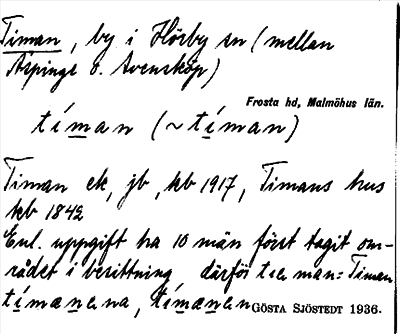 Timan, by i Hörby sn (mellan
Äspinge o. Svensköp)
Frosta hd, Malmöhus län.
tíman (~ tíman)
Timan ek, jb, kb 1917, Timans hus
kb 1842
Enl. uppgift ha 10 män först tagit om-
rådet i besittning därför tie man = Timan
tímanena, tímanen GÖSTA SJÖSTEDT 1936.